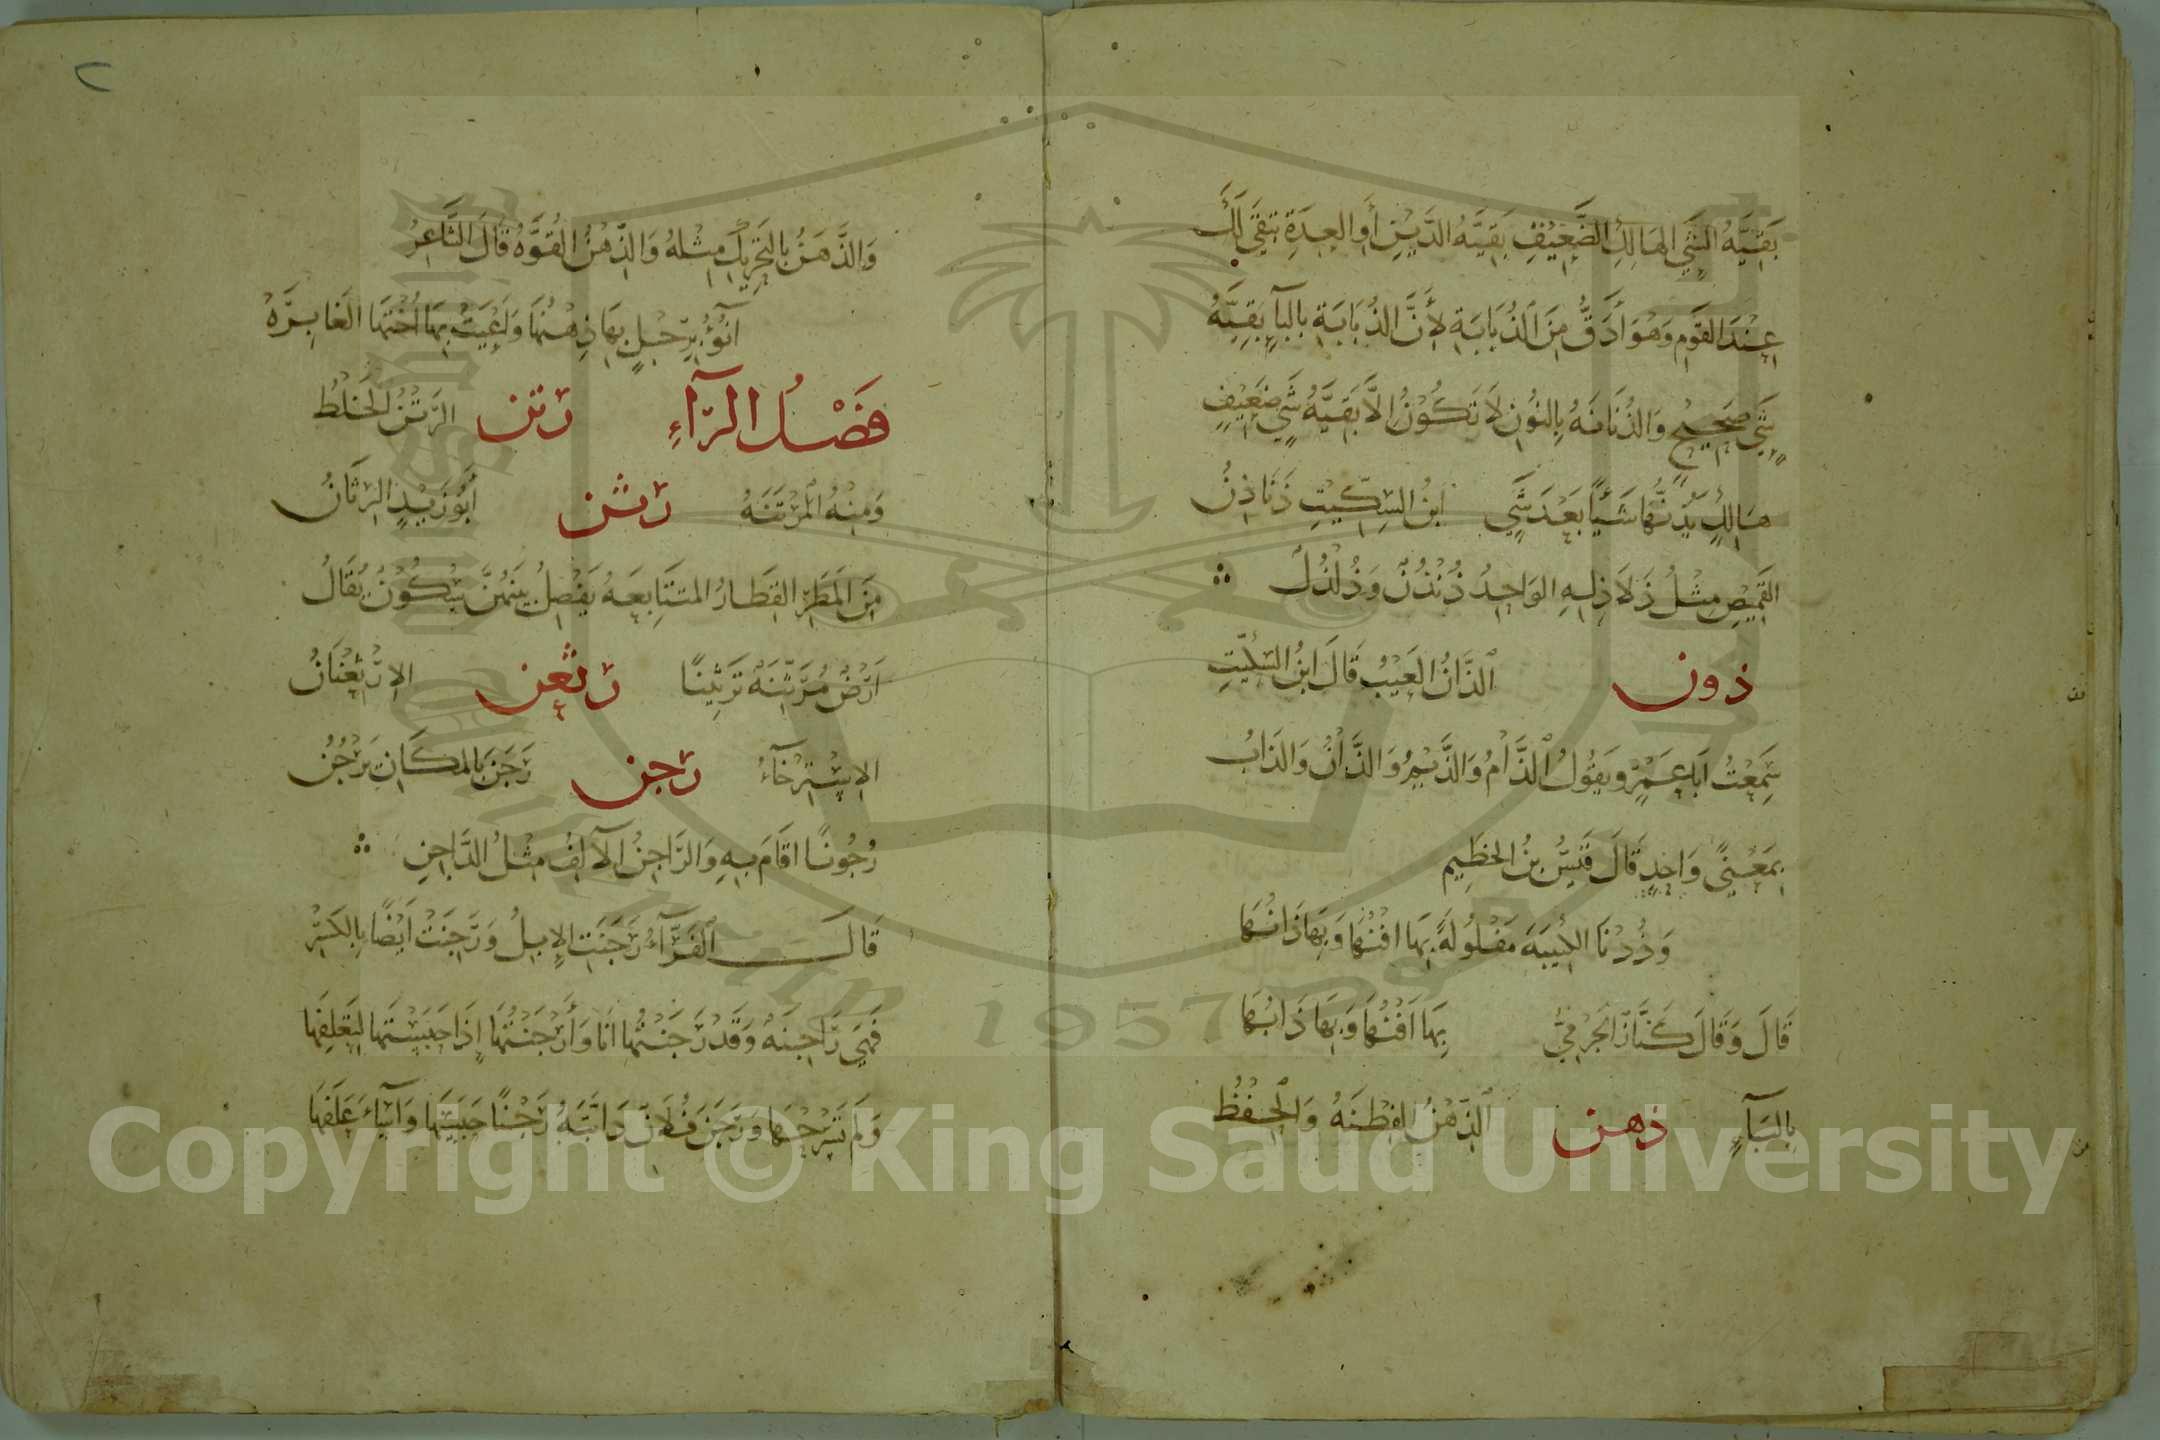 بَقِيَّةُ الشَّيْءِ الهَالِكِ الضَّعِيْفِ بَقِيَّةُ الدَّيْنِ أَوِ العِدَةِ تَبْقَى لَكَ
عِنْدَ القَوْمِ وَهُوَ أَدَقُّ مِنَ الذُبَابَةِ لأَنَّ الذُبَابَةَ بِالبَآءِ بَقِيَّةُ
شَيْءٍ صَحِيْحٍ وَالذُنَانَةُ بِالنُوْنِ لَا تَكُوْنُ إلَّا بَقِيَّةُ شَيْءٍ ضَعِيْفٍ
هَالِكٍ يَذُنُّهَا شَيْأً بَعْدَ شَيْءٍ ابْنُ السِكِّيْتِ ذَنَاذِنُ
القَمِيْصِ مِثْلُ ذَلَاذِلِهِ الوَاحِدُ ذُنْذُنٌ وَذُلْذُلٌ
ذون الذَّانُ العَيْبُ قَالَ ابْنُ السِّكِّيْتِ
سَمِعْتُ أَبَا عَمْرٍو يَقُوْلُ الذَّأْمُ وَالذَّيْمُ وَالذَّانُ وَالذَابُ
بِمَعْنًى وَاحِدٍ قَالَ قَيْسُ بنُ الخَطِيْمِ
وَدُدْنَا الكَتِيْبَةَ مَفْلُوْلَةً بِهَا افْنُهَا وَبِهَا ذَانُهَا
قَالَ وَقَالَ كَنَّازٌ الجَرْمِيُّ بِهَا اَفْنُهَا وَبِهَا ذَابُهَا
بِالبَآءِ ذهن الذِّهْنُ الفِطْنَةُ وَالحِفْظُ
٢
وَالذَّهَنُ بِالتَحْرِيْكِ مِثْلُهُ وَالذِّهْنُ القُوَّةُ قَالَ الشَّاعِرُ
أَنُوْءُ بِرِجْلٍ بِهَا ذِهْنُهَا وَاَعْيَتْ بِهَا اُخْتُهَا الغَابِرَهْ
فَصْلُ الرَّآءِ رتن الرَتْنُ الخَلْطُ
وَمِنْهُ المُرْتَنَةُ رثن أَبُوزَيْدٍ الرَثَانُ
مِنَ المَطَرِ القِطَارُ المُتَتَابِعَةُ يَفْصِلُ بَيْنَهُنَّ سُكُوْنٌ يُقَالُ
اَرْضٌ مُرَثَّنَةٌ تَرْثِيْنًا رثعن الاِرْثِعْنَانُ
الاِسْتِرْخَآءُ رجن رَجَنَ بِالمَكَانِ يَرْجُنُ
رُجُوْنًا اَقَامَ بِهِ وَالرَاجِنُ الآلِفُ مِثْلُ الدَّاجِنِ
قَالَ الفَرَّآءُ رَجَنَتِ الإِبِلُ وَرَجِنَتْ اَيْضًا بِالكَسْرِ
فَهِيَ رَاجِنَةٌ وَقَدْ رَجَنْتُهَا اَنَا وَأَرْجَنْتُهَا إِذَا حَبَسْتَهَا لِتَعْلِفَهَا
وَلَمْ تَسْرَحْهَا وَرَجَنَ فُلَانٌ دَابَّتَهُ رَجْنًا حَبَسَهَا وَاَسَآءَ عَلَفَهَا
1957
Copyright © King Saud University